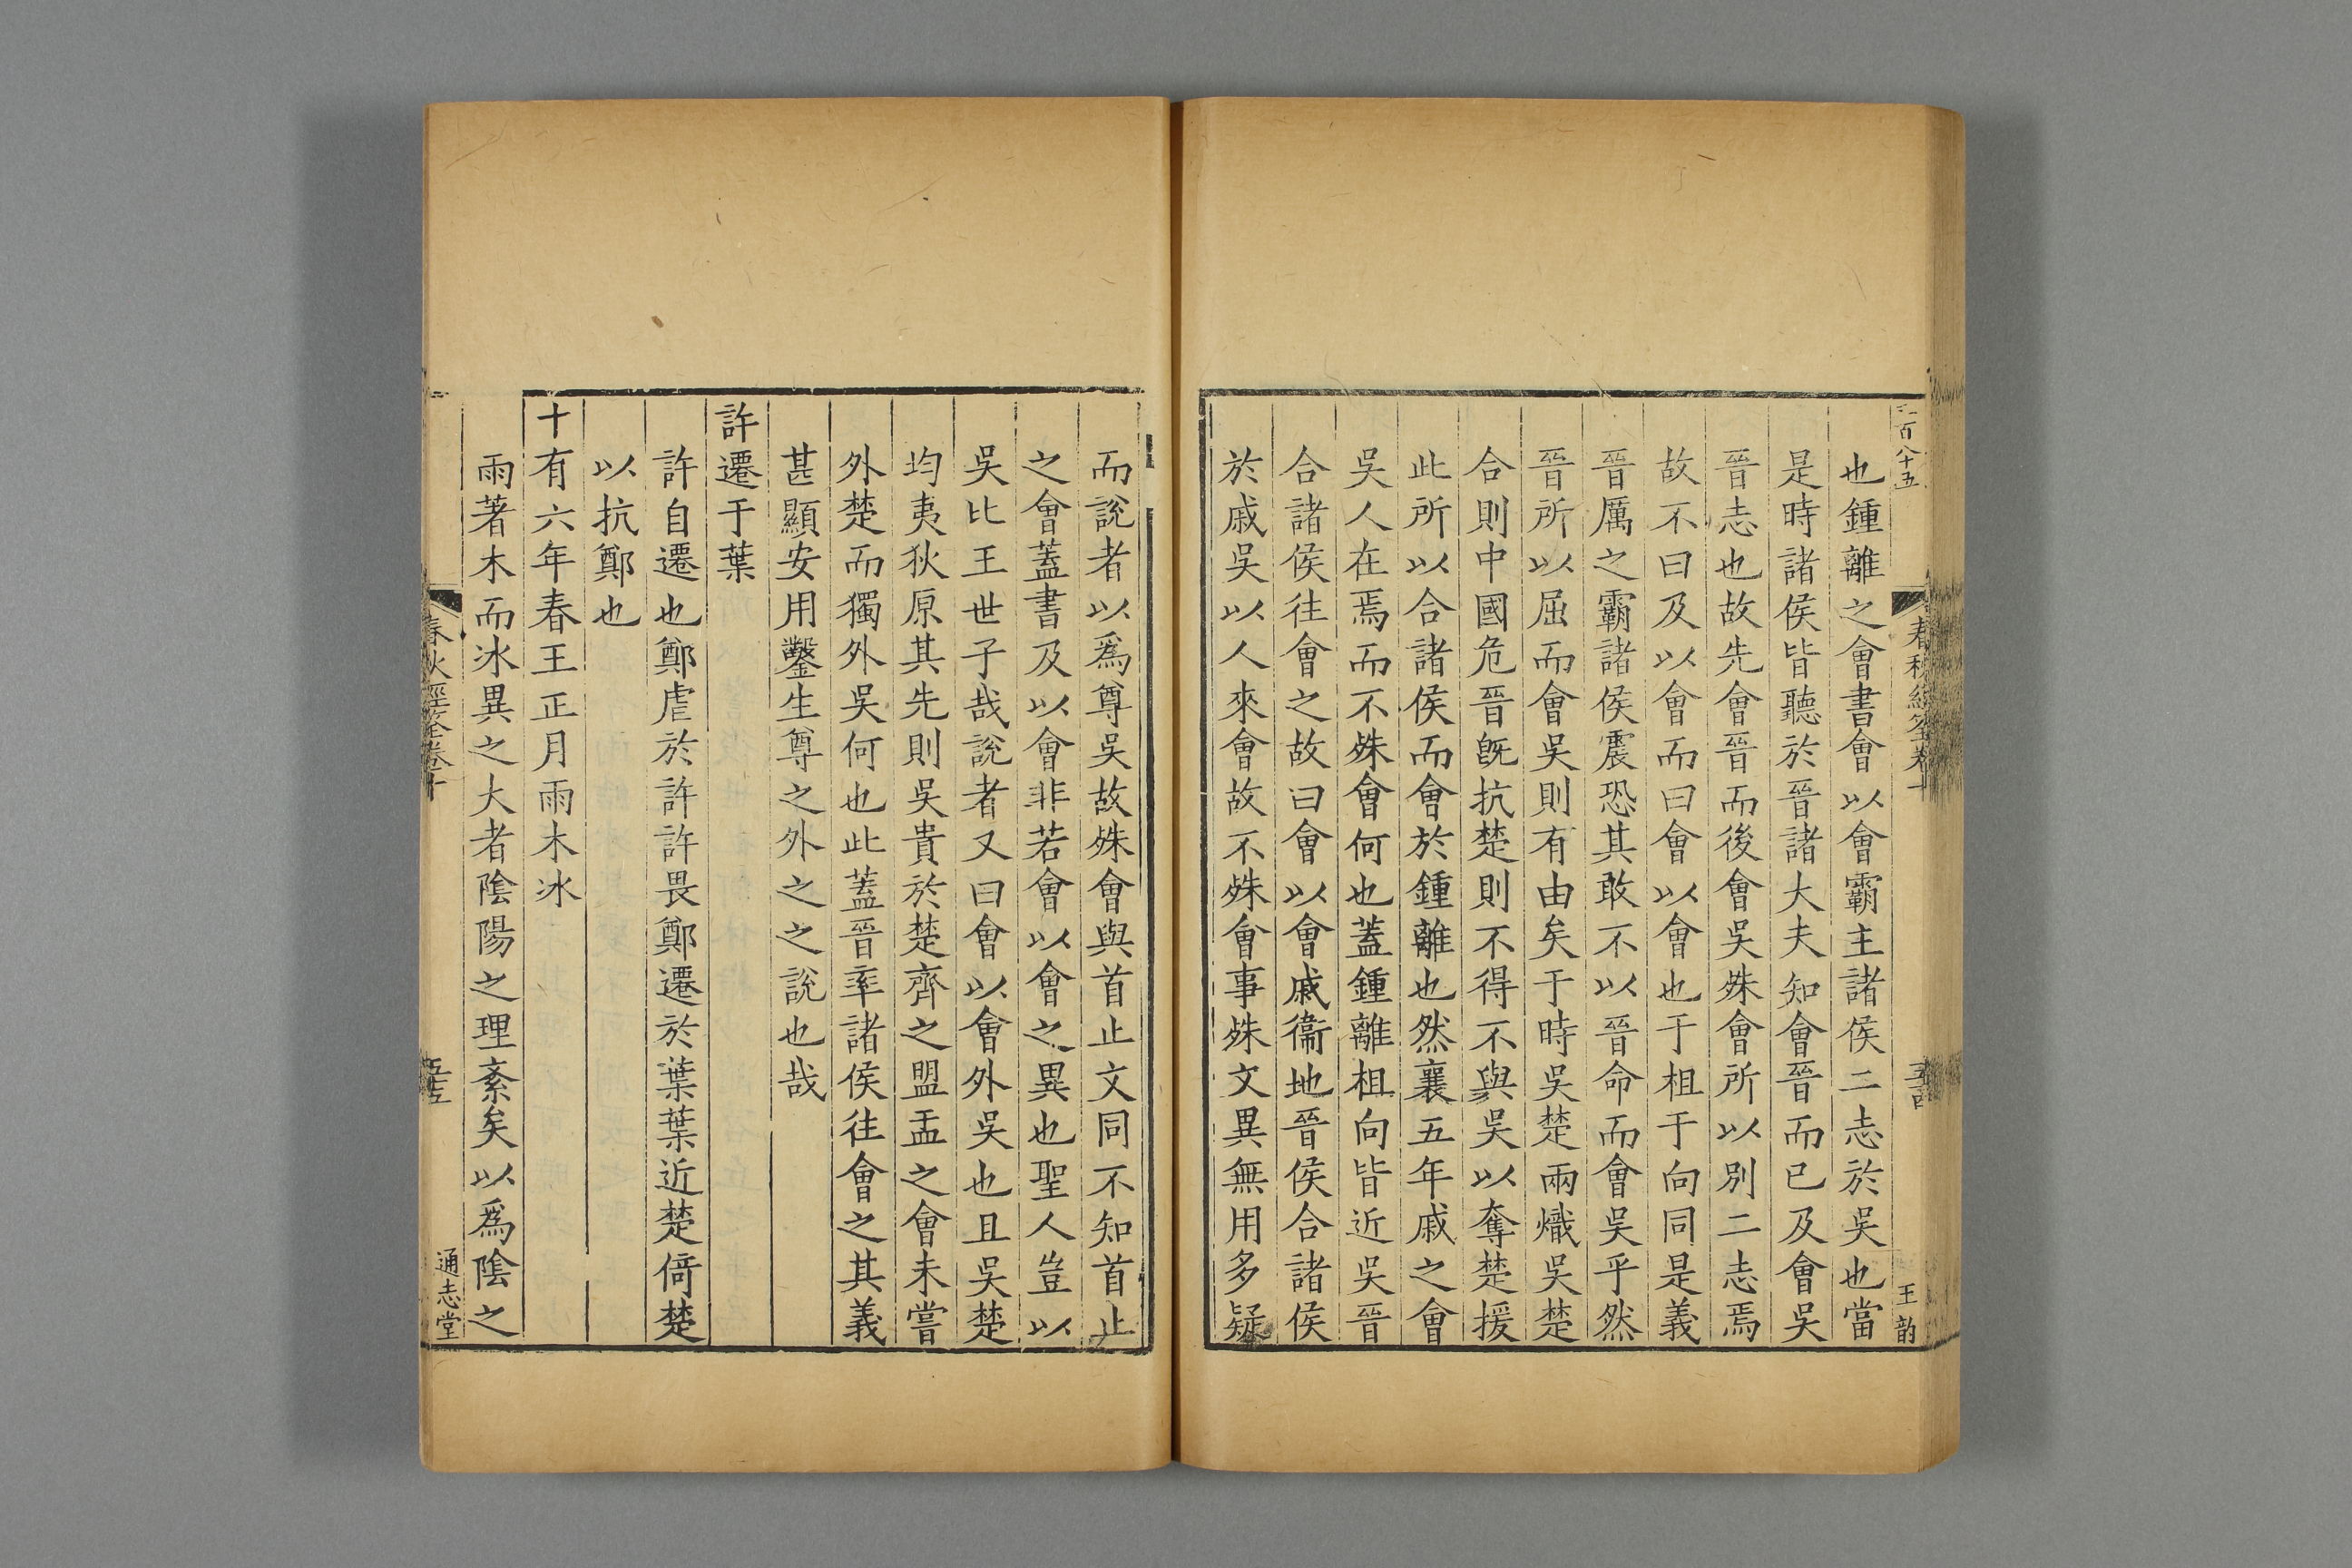 百八十五
春秋經筌卷十
王韵
也鍾離之會書會以會霸主諸侯二志於吳也當
是時諸侯皆聽於晉諸大夫知會晉而已及會吳
晉志也故先會晉而後會吳殊會所以別二志焉
故不曰及以會而曰會以會也于柤于向同是義
晉厲之霸諸侯震恐其敢不以晉命而會吳乎然
晉所以屈而會吳則有由矣于時吳楚兩熾吳楚
合則中國危晉旣抗楚則不得不與吳以奪楚援
此所以合諸侯而會於鍾離也然襄五年戚之會
吳人在焉而不殊會何也蓋鍾離柤向皆近吳晉
合諸侯往會之故曰會以會戚衞地晉侯合諸侯
於戚吳以人來會故不殊會事殊文異無用多疑
而說者以爲尊吳故殊會與首止文同不知首止
之會蓋書及以會非若會以會之異也聖人豈以
吳比王世子哉說者又曰會以會外吳也且吳楚
均夷狄原其先則吳貴於楚齊之盟盂之會未嘗
外楚而獨外吳何也此蓋晉率諸侯往會之其義
甚顯安用鑿生尊之外之之說也哉
許遷于葉
許自遷也鄭虐於許許畏鄭遷於葉葉近楚倚楚
以抗鄭也
十有六年春王正月雨木冰
雨著木而冰異之大者陰陽之理紊矣以爲陰之
春秋經筌卷十
通志堂